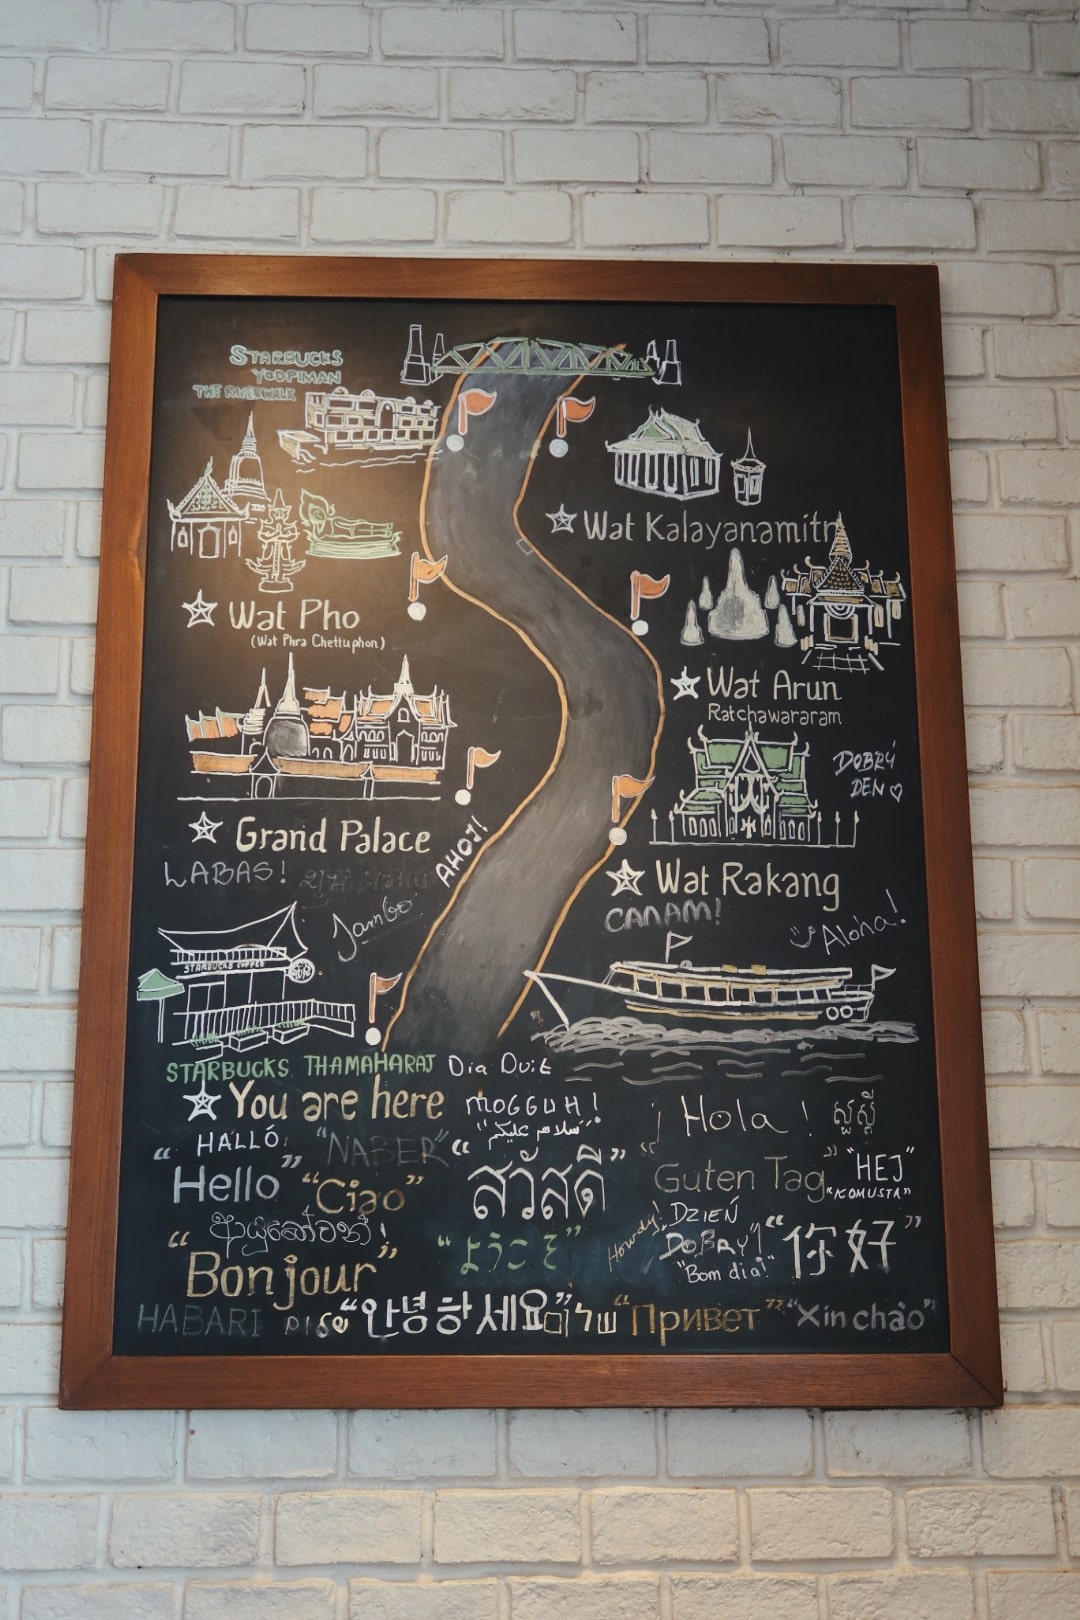 STARBUCKS
YODPIMAN
THE RIVERWALK
Wat Kalayanamitr
Wat Pho
(Wat Phra Chettuphon)
Wat Arun
Ratchawararam
DOBRÝ
DEN
Grand Palace
AHOJ!
Wat Rakang
LABAS!
CANAM!
Jambo
Aloha!
STARBUCKS COFFEE
STARBUCKS THAMAHARAJ
Dia Duit
You are here
mOGGUH!
¡Hola!
សួស្តី
HALLÓ!
"NABER"
"سلام علیکم"
"Hello"
"Ciao"
"สวัสดี"
"Guten Tag"
"HEJ"
"KOMUSTA"
ආයුබෝවන්!
Howdy!
DZIEŃ
DOBRY!
"你好"
"Bonjour"
"ようこそ"
"Bom dia!"
HABARI
"안녕하세요"
"Привет"
"Xin chào"